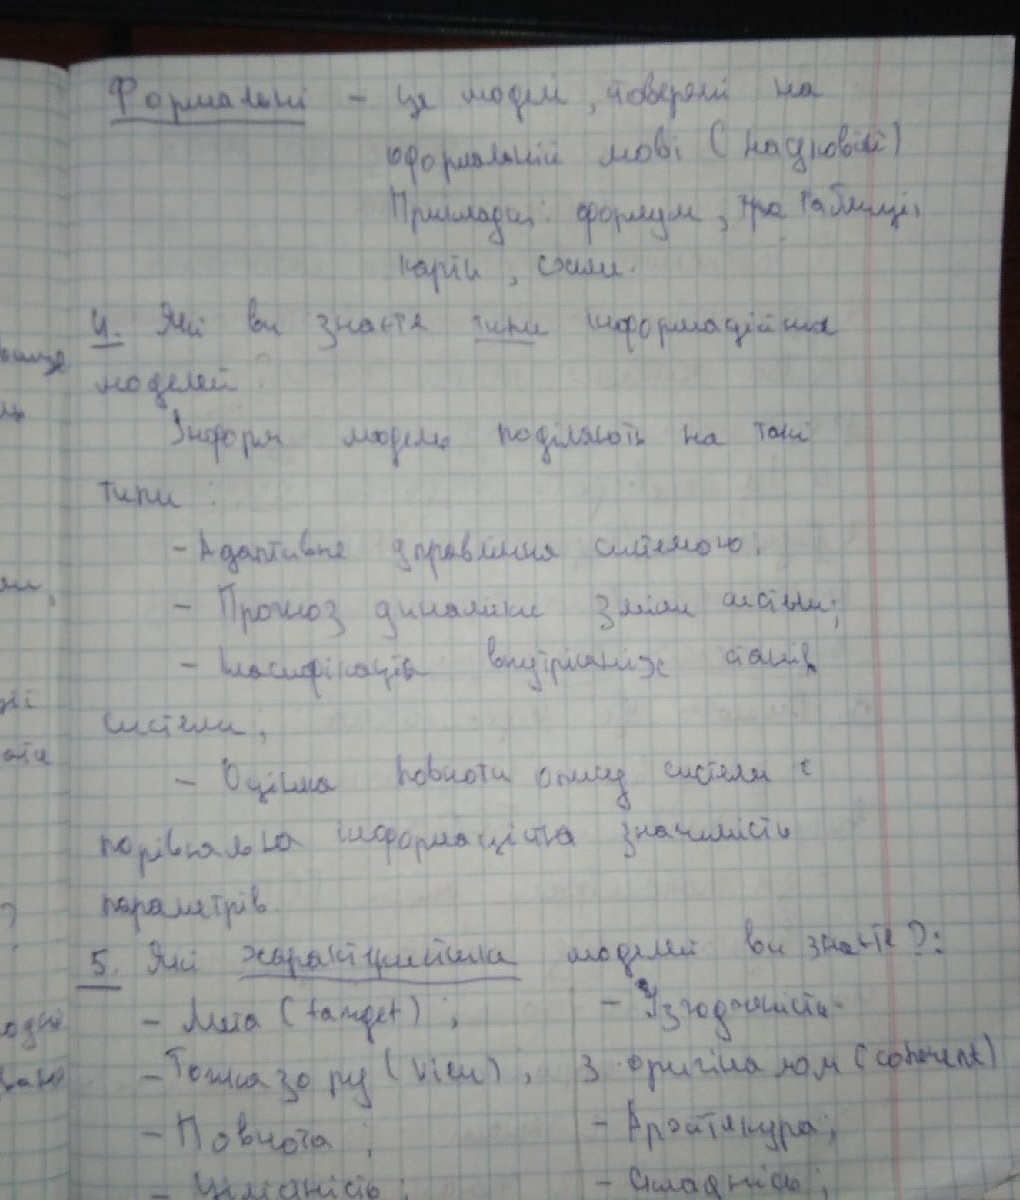 Формальні - це моделі, створені на
формальній мові (науковій)
Приклади: формули, таблиці,
карти, схеми.
4. Які ви знаєте типи інформаційних
моделей?
Інформ моделі поділяють на такі
типи:
- Адаптивне управління системою;
- Прогноз динаміки зміни системи;
- Класифікація внутрішніх станів
системи;
- Оцінка повноти опису системи і
порівняльна інформаційна значимість
параметрів
5. Які характеристики моделей ви знаєте?:
- Мета (target);
- Точка зору (view);
- Повнота;
- Цілісність;
- Узгодженість
з оригіналом (coherent)
- Архітектура;
- Складність;